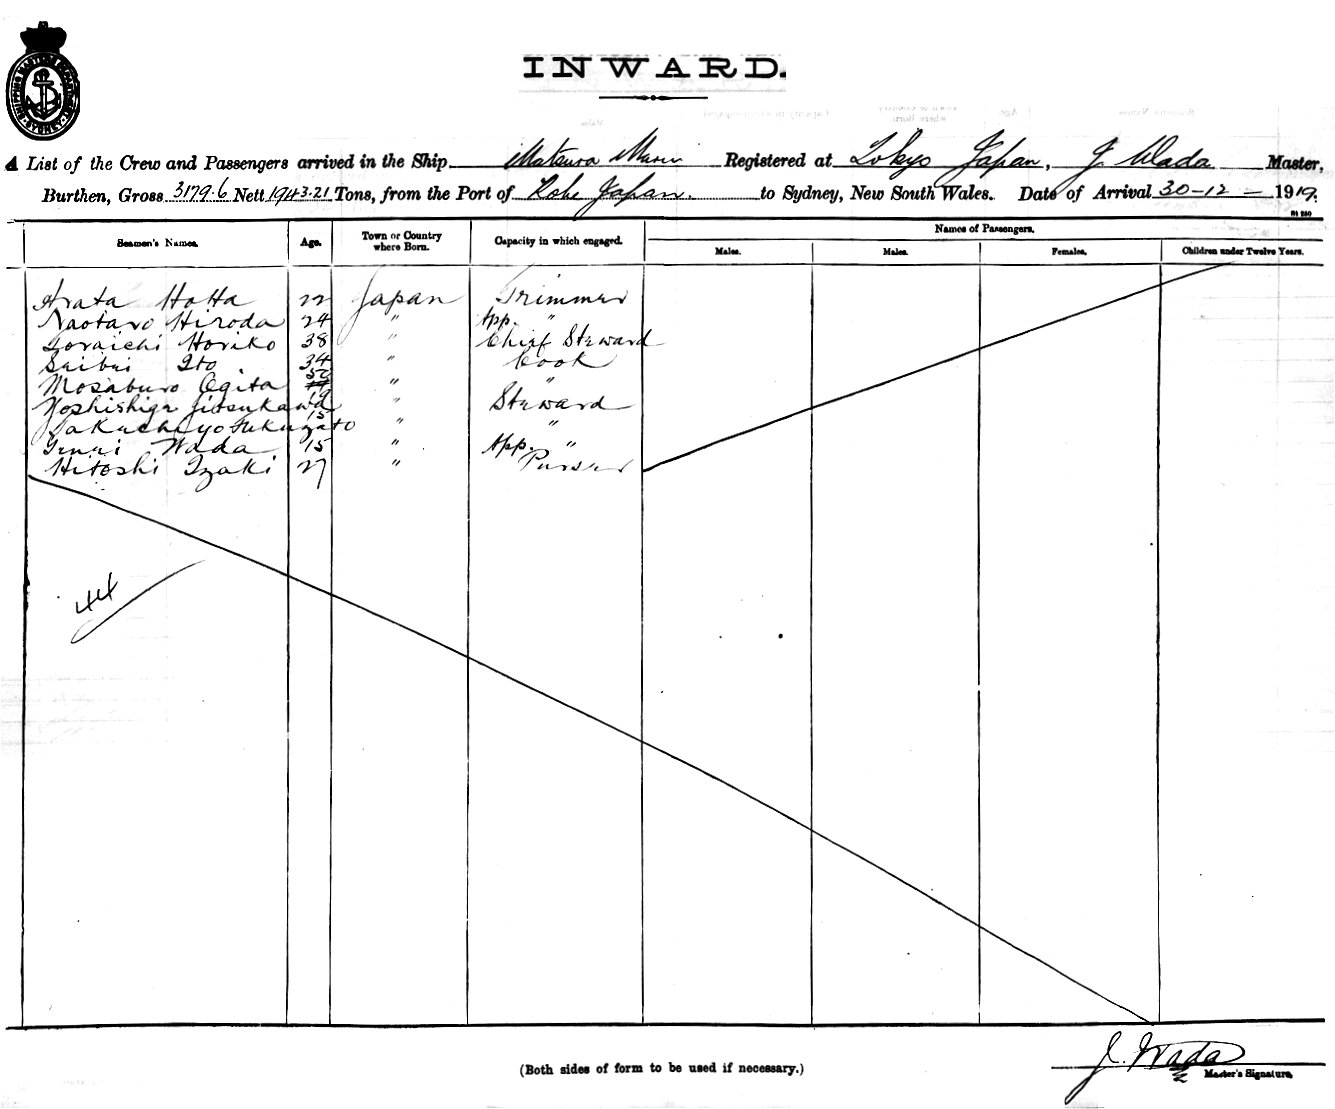 SHIPPING MASTER'S DEPARTMENT SYDNEY
INWARD.
A List of the Crew and Passengers arrived in the Ship Matsura Maru Registered at Tokyo Japan, J. Wada Master,
Burthen, Gross 3179.6 Nett 1943.21 Tons, from the Port of Kobe Japan. to Sydney, New South Wales. Date of Arrival 30-12- 1919.
Seamen's Names. Age. Town or Country where Born. Capacity in which engaged. Names of Passengers.
Males. Males. Females. Children under Twelve Years.
Arata Hotta 22 Japan Trimmer
Naotaro Hiroda 24 " App. "
Toraichi Horiko 38 " Chief Steward
Seibei Ito 34 " Cook
Mosaburo Ogita 50 " "
Yoshishige Jitsukawa 19 " Steward
Takuchiyo Fukuzato 15 " "
Genri Wada 15 " App. "
Hitoshi Izaki 27 " Purser
44
(Both sides of form to be used if necessary.)
J. Wada
Master's Signature.